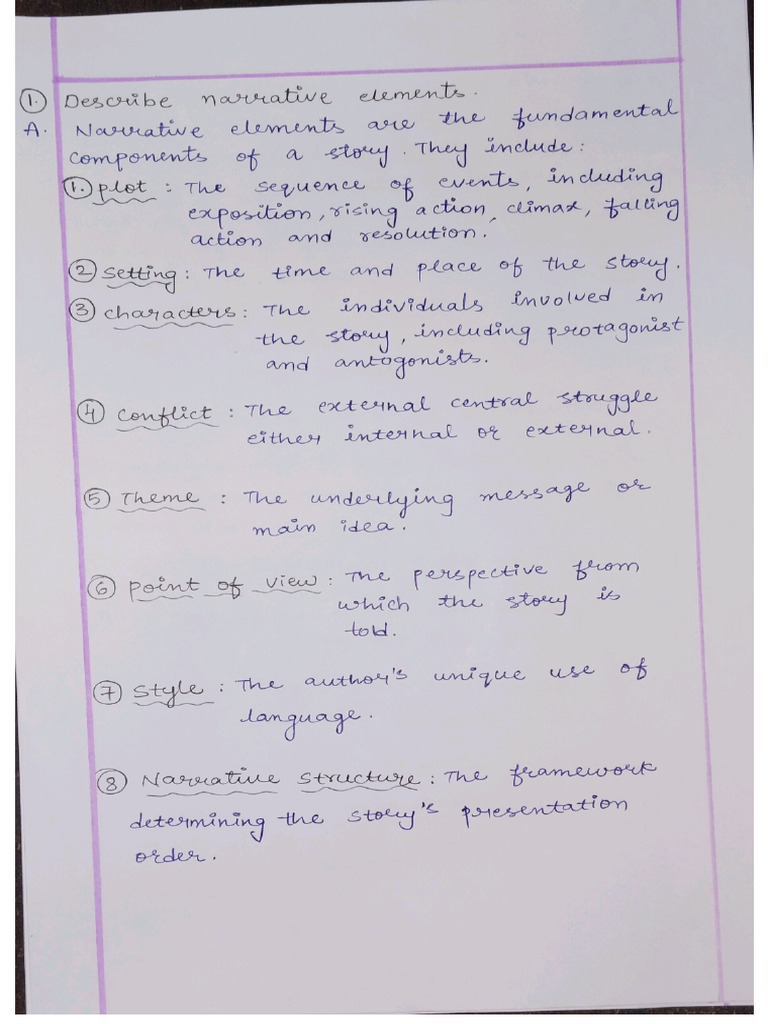 1. Describe narrative elements.
A. Narrative elements are the fundamental
components of a story. They include:
1. plot : The sequence of events, including
exposition, rising action, climax, falling
action and resolution.
2 setting : The time and place of the story.
3 characters : The individuals involved in
the story, including protagonist
and antogonists.
4 conflict : The external central struggle
either internal or external.
5 Theme : The underlying message or
main idea.
6 point of view : The perspective from
which the story is
told.
7 style : The author's unique use of
language.
8 Narrative structure : The framework
determining the story's presentation
order.